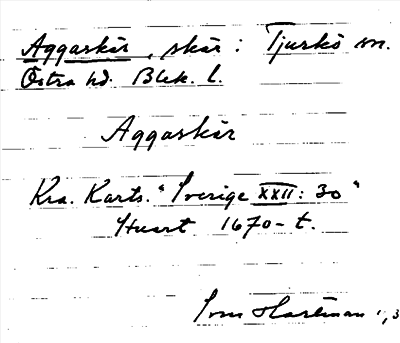 Aggarskär, skär: Tjurkö sn.
Östra hd. Blek. l.
Aggarskär
Kra. Karts. "Sverige XXII: 30"
Kvart 1670-t.
Ivar Hartman